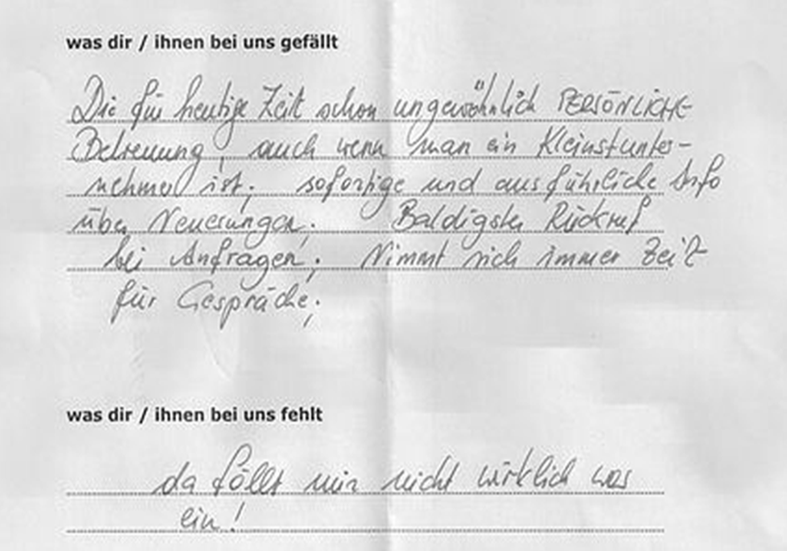 was dir / ihnen bei uns gefällt
Die für heutige Zeit schon ungewöhnlich PERSÖNLICHE
Betreuung, auch wenn man ein Kleinstunter-
nehmer ist; sofortige und ausführliche Info
über Neuerungen; Baldigster Rückruf
bei Anfragen; Nimmt sich immer Zeit
für Gespräche;
was dir / ihnen bei uns fehlt
da fällt mir nicht wirklich was
ein!